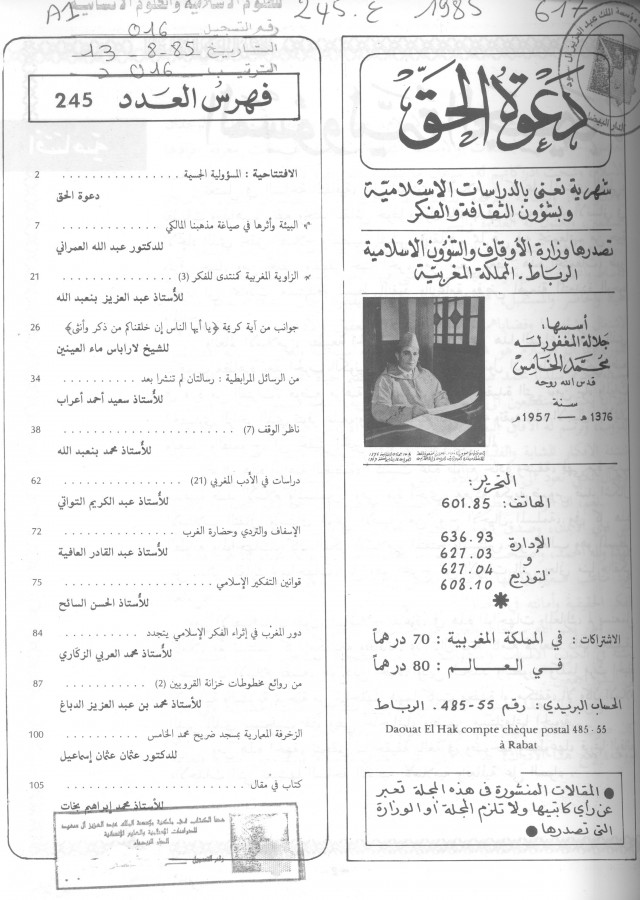 A1
245. ع 1985 617
للعلوم الإسلامية والعلوم الانسانية
رقم التسجيل 016
التاريخ 13 8.85
الترتيب 016
دعوة الحق
شهرية تعنى بالدراسات الاسلامية
وبشؤون الثقافة والفكر
تصدرها وزارة الأوقاف والشؤون الاسلامية
الرباط. المملكة المغربية
أسسها:
جلالة المغفور له
محمد الخامس
قدس الله روحه
سنة
1376 هـ — 1957 م
التحرير:
الهاتف: 601.85
الإدارة 636.93
و 627.03
التوزيع 627.04
608.10
الاشتراكات: في المملكة المغربية: 70 درهماً
في العالم: 80 درهماً
الحساب البريدي: رقم 55-485. الرباط
Daouat El Hak compte chèque postal 485 - 55
à Rabat
● المقالات المنشورة في هذه المجلة تعبر
عن رأي كاتبيها ولا تلزم المجلة أو الوزارة
التي تصدرها ●
فهرس العدد 245
الافتتاحية : المسؤولية الجسيمة . . . . . . . . . . . . . . . 2
دعوة الحق
البيئة وأثرها في صياغة مذهبنا المالكي . . . . . . . . . . . . . 7
للدكتور عبد الله العمراني
الزاوية المغربية كمنتدى للفكر (3) . . . . . . . . . . . . 21
للأستاذ عبد العزيز بنعبد الله
جوانب من آية كريمة ﴿يا أيها الناس إن خلقناكم من ذكر وأنثى﴾ 26
للشيخ لاراباس ماء العينين
من الرسائل المرابطية : رسالتان لم تنشرا بعد . . . . . . . . . . 34
للأستاذ سعيد أحمد أعراب
ناظر الوقف (7) . . . . . . . . . . . . . . . . . . . . . . . 38
للأستاذ محمد بنعبد الله
دراسات في الأدب المغربي (21) . . . . . . . . . . . . . . . . 62
للأستاذ عبد الكريم التواتي
الإسفاف والتردي وحضارة الغرب . . . . . . . . . . . . . . 72
للأستاذ عبد القادر العافية
قوانين التفكير الإسلامي . . . . . . . . . . . . . . . . . . . . 75
للأستاذ الحسن السائح
دور المغرب في إثراء الفكر الإسلامي يتجدد . . . . . . . . . . 84
للأستاذ محمد العربي الزكاري
من روائع مخطوطات خزانة القرويين (2) . . . . . . . . . . . 87
للأستاذ محمد بن عبد العزيز الدباغ
الزخرفة المعمارية بمسجد ضريح محمد الخامس . . . . . . . . . 100
للدكتور عثمان عثمان إسماعيل
كتاب في مقال . . . . . . . . . . . . . . . . . . . . . . . . 105
للأستاذ محمد إبراهيم بخات
هذا الكتاب في ملكية مؤسسة الملك عبد العزيز آل سعود
للدراسات الإسلامية والعلوم الإنسانية
الدار البيضاء
رقم التسجيل